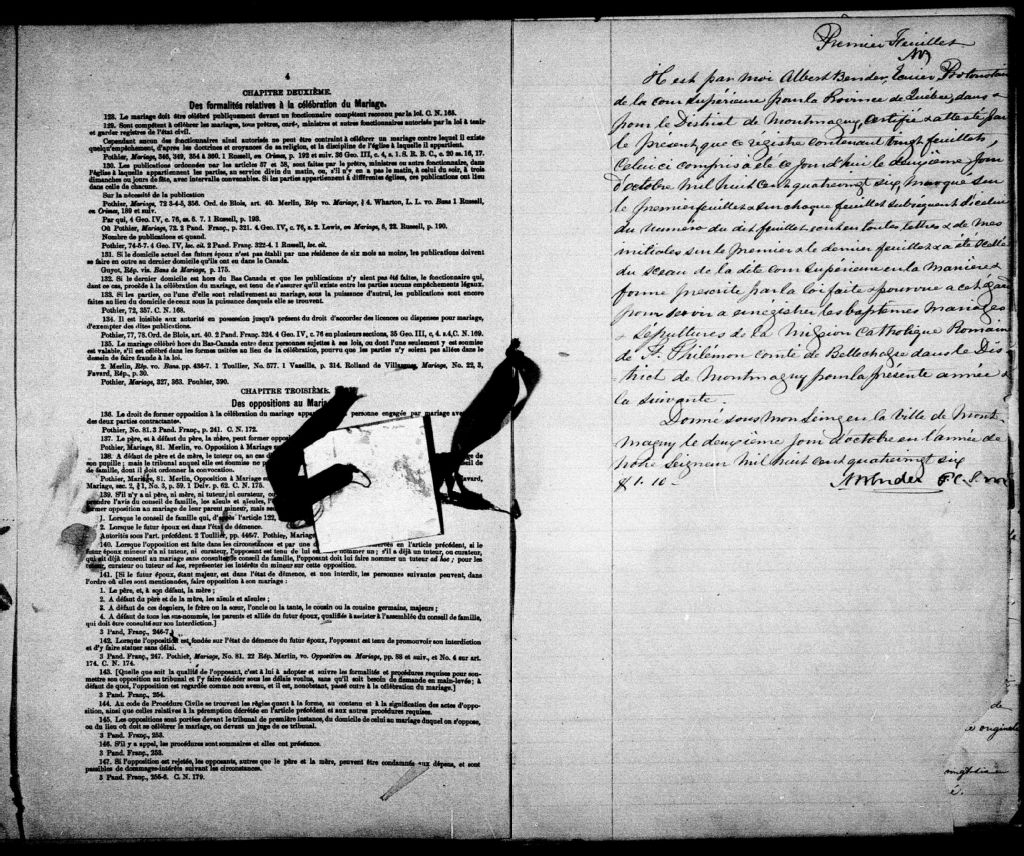 4
CHAPITRE DEUXIÈME.
Des formalités relatives à la célébration du Mariage.
128. Le mariage doit être célébré publiquement devant un fonctionnaire compétent reconnu par la loi. C. N. 165.
129. Sont compétents à célébrer les mariages, tous prêtres, curés, ministres et autres fonctionnaires autorisés par la loi à tenir
et garder registres de l'état civil.
Cependant aucun des fonctionnaires ainsi autorisés ne peut être contraint à célébrer un mariage contre lequel il existe
quelqu'empêchement, d'après les doctrines et croyances de sa religion, et la discipline de l'église à laquelle il appartient.
Pothier, Mariage, 346, 349, 354 à 360. 1 Russell, on Crimes, p. 192 et suiv. 35 Geo. III, c. 4, s. 1. S. R. B. C., c. 20 ss. 16, 17.
130. Les publications ordonnées par les articles 57 et 58, sont faites par le prêtre, ministre ou autre fonctionnaire, dans
l'église à laquelle appartiennent les parties, au service divin du matin, ou, s'il n'y en a pas le matin, à celui du soir, à trois
dimanches ou jours de fête, avec intervalle convenable. Si les parties appartiennent à différentes églises, ces publications ont lieu
dans celle de chacune.
Sur la nécessité de la publication
Pothier, Mariage, 72 3-4-5, 356. Ord. de Blois, art. 40. Merlin, Rép vo. Mariage, § 4. Wharton, L. L. vo. Bans 1 Russell,
on Crimes, 189 et suiv.
Par qui, 4 Geo. IV, c. 76, ss. 6. 7. 1 Russell, p. 193.
Où Pothier, Mariage, 72. 2 Pand. Franç., p. 321. 4 Geo. IV, c. 76, s. 2. Lewis, on Mariage, 8, 22. Russell, p. 190.
Nombre de publications et quand.
Pothier, 74-5-7. 4 Geo. IV, loc. cit. 2 Pand. Franç. 322-4. 1 Russell, loc. cit.
131. Si le domicile actuel des futurs époux n'est pas établi par une résidence de six mois au moins, les publications doivent
se faire en outre au dernier domicile qu'ils ont eu dans le Canada.
Guyot, Rép. vis. Bans de Mariage, p. 175.
132. Si le dernier domicile est hors du Bas Canada et que les publications n'y aient pas été faites, le fonctionnaire qui,
dans ce cas, procède à la célébration du mariage, est tenu de s'assurer qu'il existe entre les parties aucuns empêchements légaux.
133. Si les parties, ou l'une d'elle sont relativement au mariage, sous la puissance d'autrui, les publications sont encore
faites au lieu du domicile de ceux sous la puissance desquels elle se trouvent.
Pothier, 72, 357. C. N. 168.
134. Il est loisible aux autorité en possession jusqu'à présent du droit d'accorder des licences ou dispenses pour mariage,
d'exempter des dites publications.
Pothier, 77, 78. Ord. de Blois, art. 40. 2 Pand. Franç. 324. 4 Geo. IV, c. 76 en plusieurs sections, 35 Geo. III, c, 4. s.4, C. N. 169.
135. Le mariage célébré hors du Bas-Canada entre deux personnes sujettes à ses lois, ou dont l'une seulement y est soumise
est valable, s'il est célébré dans les formes usitées au lieu de la célébration, pourvu que les parties n'y soient pas allées dans le
dessein de faire fraude à la loi.
2. Merlin, Rép. vo. Bans. pp. 436-7. 1 Toullier, No. 577. 1 Vazeille, p. 314. Rolland de Villargues, Mariage, No. 22, 3,
Favard, Rép., p. 30.
Pothier, Mariage, 327, 363. Pouhier, 390.
CHAPITRE TROISIÈME.
Des oppositions au Maria
136. Le droit de former opposition à la célébration du mariage appar personne engagée par mariage ave
des deux parties contractantes.
Pothier, No. 81. 3 Pand. Franç., p. 241. C. N. 172.
137. Le père, et à défaut du père, la mère, peut former opposi
Pothier, Mariage, 81. Merlin, vo. Opposition à Mariage
138. A défaut de père et de mère, le tuteur ou, au cas d
son pupille; mais le tribunal auquel elle est soumise ne p
de famille, dont il doit ordonner la convocation.
Pothier, Mariage, 81. Merlin, Opposition à Mariage
Mariage, sec. 2, § 1, No. 3, p. 59. 1 Delv. p. 62. C. N. 175.
139. S'il n'y a ni père, ni mère, ni tuteur, ni curateur, ou
prendre l'avis du conseil de famille, les aïeuls et aïeules,
former opposition au mariage de leur parent mineur, mais se
1. Lorsque le conseil de famille qui, d'après l'article 122,
2. Lorsque le futur époux est dans l'état de démence.
Autorités sous l'art. précédent. 2 Toullier, pp. 446-7. Pothier, Mariag
140. Lorsque l'opposition est faite dans les circonstances et par une d és en l'article précédent, si le
futur époux mineur n'a ni tuteur, ni curateur, l'opposant est tenu de lui nommer un; s'il a déjà un tuteur, ou curateur,
qui ait déjà consenti au mariage sans consulter le conseil de famille, l'opposant doit lui faire nommer un tuteur ad hoc; pour les
tuteur, curateur ou tuteur ad hoc, représenter les intérêts du mineur sur cette opposition.
141. [Si le futur époux, étant majeur, est dans l'état de démence, et non interdit, les personnes suivantes peuvent, dans
l'ordre où elles sont mentionnées, faire opposition à son mariage :
1. Le père, et, à son défaut, la mère ;
2. A défaut du père et de la mère, les aïeuls et aïeules ;
3. A défaut de ces derniers, le frère ou la sœur, l'oncle ou la tante, le cousin ou la cousine germains, majeurs ;
4. A défaut de tous les sus-nommés, les parents et alliés du futur époux, qualifiés à assister à l'assemblée du conseil de famille,
qui doit être consulté sur son interdiction.]
3 Pand, Franç., 246-7.
142. Lorsque l'opposition est fondée sur l'état de démence du futur époux, l'opposant est tenu de promouvoir son interdiction
et d'y faire statuer sans délai.
3 Pand. Franç., 247. Pothier, Mariage, No. 81. 22 Rép. Merlin, vo. Opposition au Mariage, pp. 88 et suiv., et No. 4 sur art.
174. C. N. 174.
143. [Quelle que soit la qualité de l'opposant, c'est à lui à adopter et suivre les formalités et procédures requises pour sou-
mettre son opposition au tribunal et l'y faire décider sous les délais voulus, sans qu'il soit besoin de demande en main-levée ; à
défaut de quoi, l'opposition est regardée comme non avenue, et il est, nonobstant, passé outre à la célébration du mariage.]
3 Pand. Franç., 254.
144. Au code de Procédure Civile se trouvent les règles quant à la forme, au contenu et à la signification des actes d'oppo-
sition, ainsi que celles relatives à la péremption décrétée en l'article précédent et aux autres procédures requises.
145. Les oppositions sont portées devant le tribunal de première instance, du domicile de celui au mariage duquel on s'oppose,
ou du lieu où doit se célébrer le mariage, ou devant un juge de ce tribunal.
3 Pand. Franç., 253.
146. S'il y a appel, les procédures sont sommaires et elles ont préséance.
3 Pand. Franç., 253.
147. Si l'opposition est rejetée, les opposants, autres que le père et la mère, peuvent être condamnés aux dépens, et sont
passibles de dommages-intérêts suivant les circonstances.
3 Pand. Franç., 255-6. C. N. 179.
Premier Feuillet
Il est par moi Albert Bender, Ecuier Protonotaire
de la cour Supérieure pour la Province de Québec, dans &
pour le District de Montmagny, certifié & attesté par
le présent, que ce régistre contenant vingt feuillets,
Celui ci compris a été ce jourd'hui le deuxième jour
d'octobre mil huit cent quatre vingt six marqué sur
le premier feuillet & sur chaque feuillet subséquent d'icelui
du numéro du dit feuillet écrit en toutes lettres & de mes
initiales sur le premier & le dernier feuillet & a été scellé
du sceau de la dite cour Supérieure en la manière &
forme prescrite par la loi faite & pourvue à cet égard
pour servir à enrégistrer les baptêmes mariages
& sépultures de la mission Catholique Romaine
de St Philémon comté de Bellechasse dans le Dis-
trict de Montmagny pour la présente année &
la suivante.
Donné sous mon Seing en la ville de Mont-
magny le deuxième jour d'octobre en l'année de
notre Seigneur mil huit cent quatre vingt six
$1.10
A Bender P.C.S.
de
original